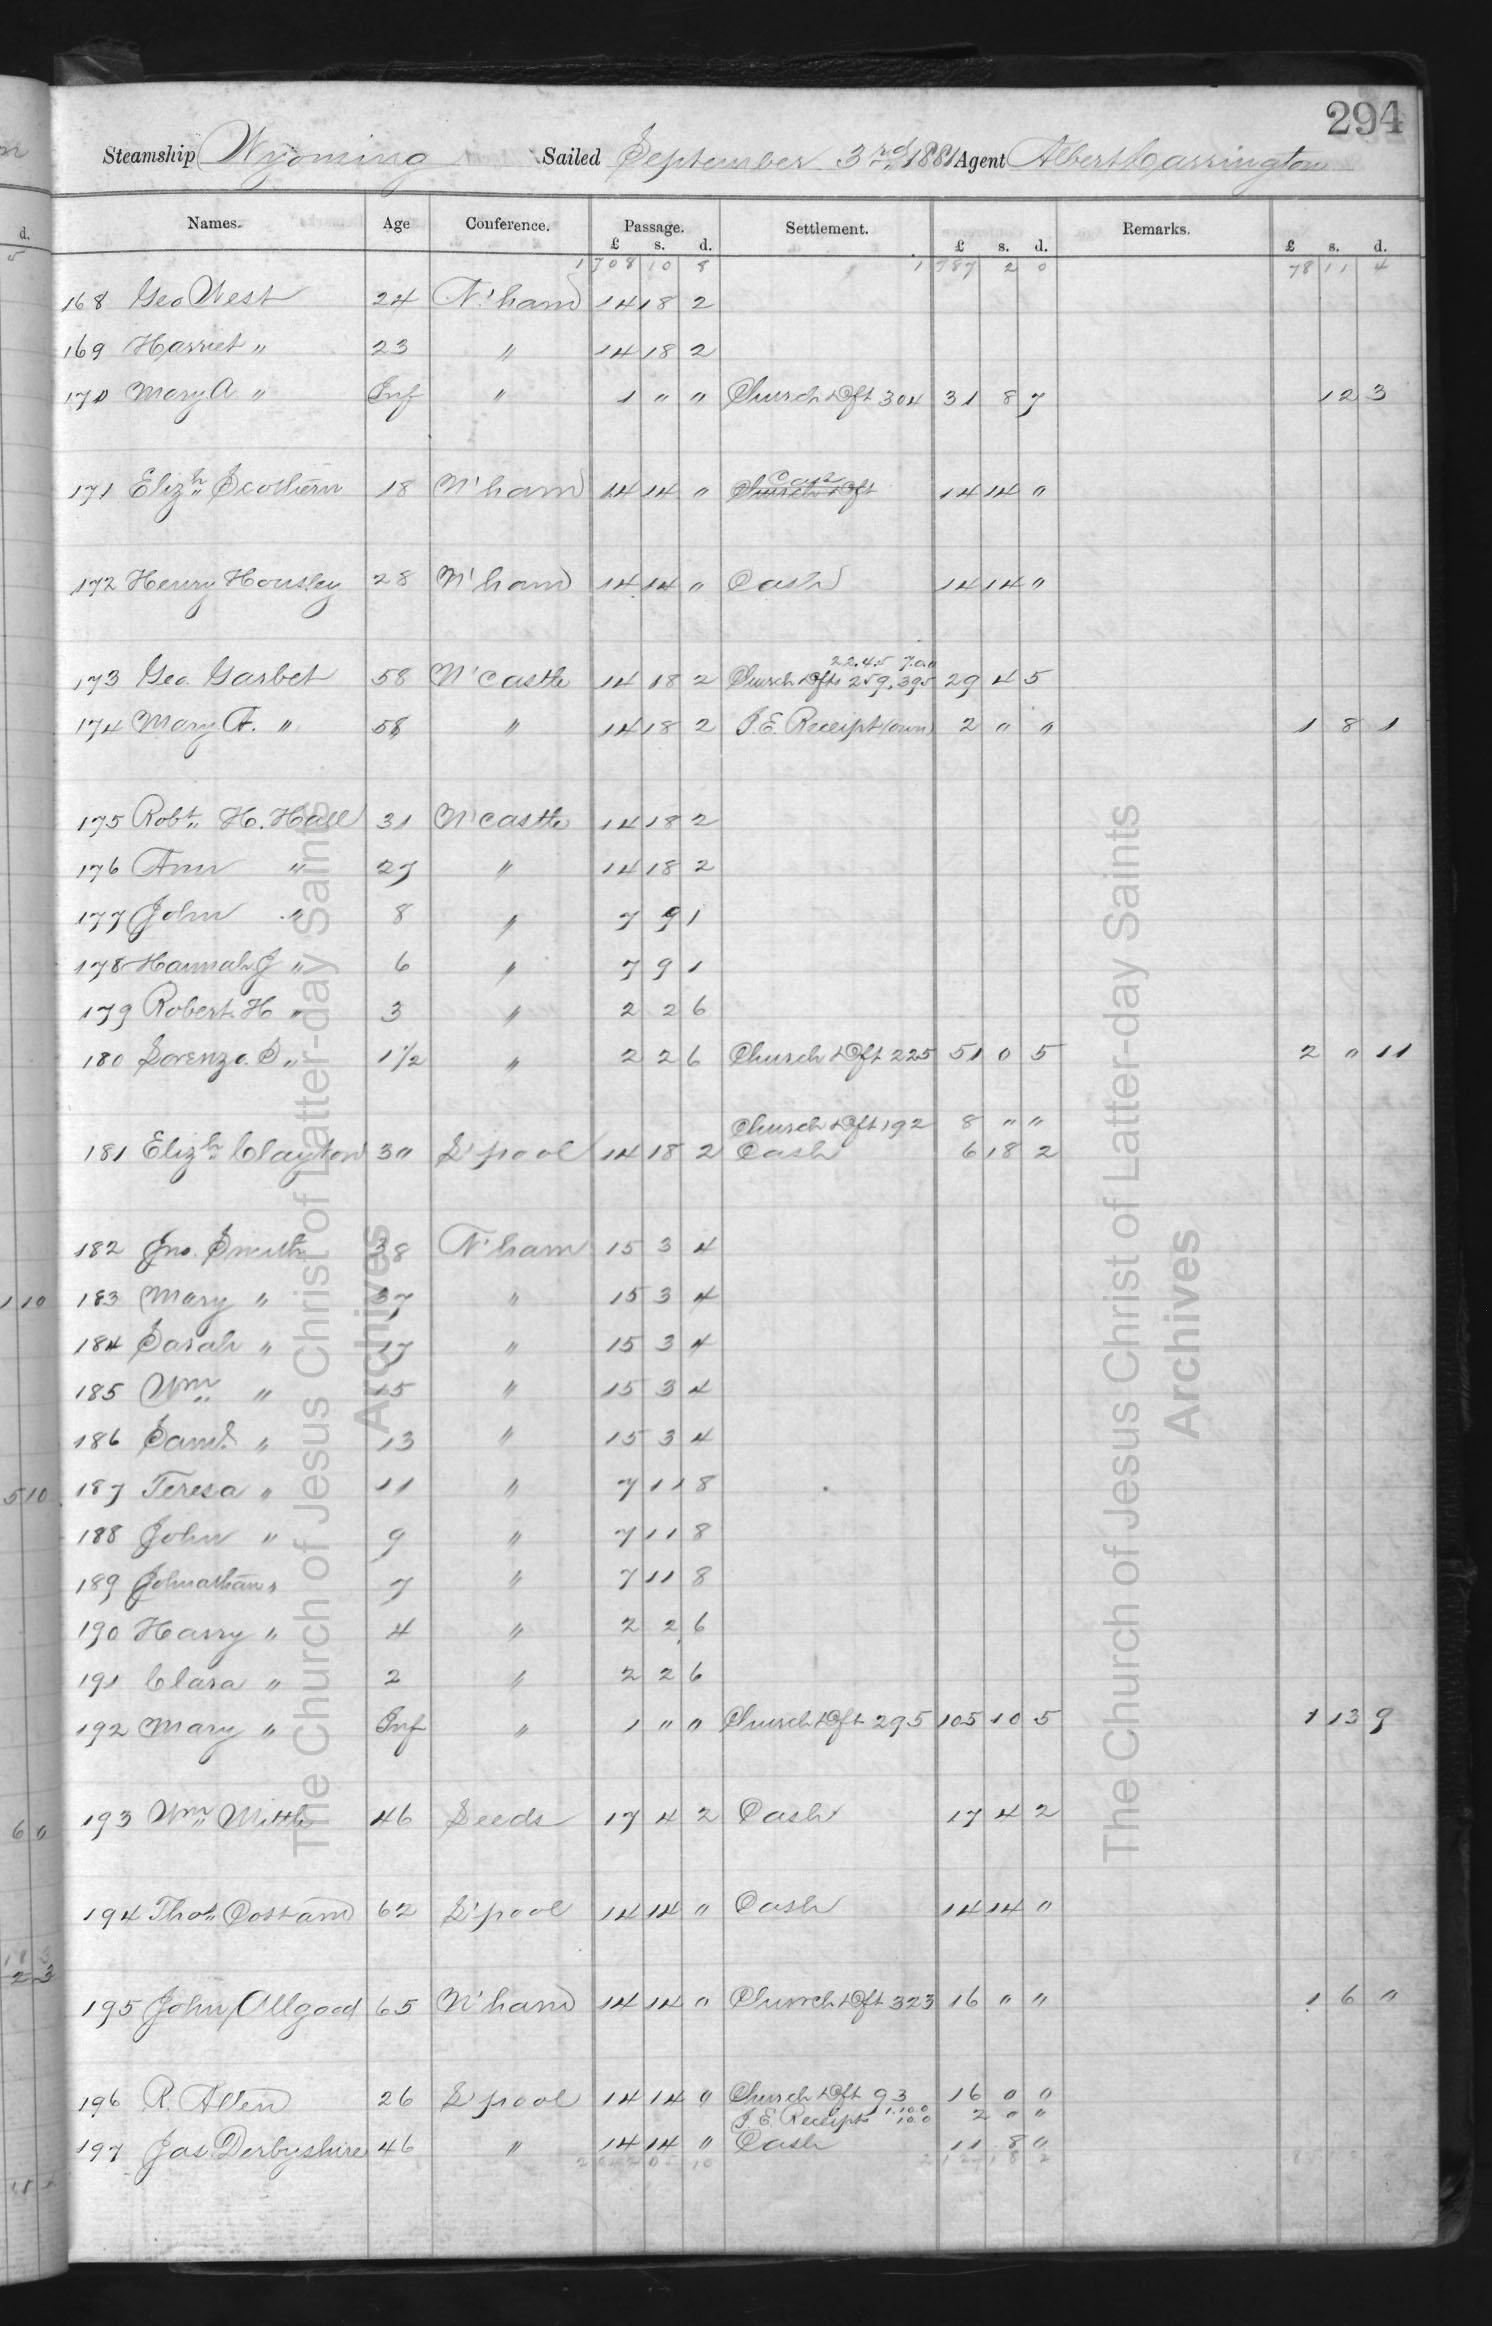 294
Steamship Wyoming Sailed September 3rd 1881 Agent Albert Carrington
Names. Age Conference. Passage. Settlement. Remarks.
£ s. d. £ s. d. £ s. d.
1708 10 8 1787 2 0 78 11 4
168 Geo West 24 N'ham 14 18 2
169 Harriet " 23 " 14 18 2
170 Mary A. " Inf " 1 " " Church Dft 304 31 8 7 12 3
Cash
171 Elizh Scothern 18 N'ham 14 14 " Church Dft 14 14 "
172 Henry Housley 28 N'ham 14 14 " Cash 14 14 "
22.4.5 7.0.0
173 Geo. Garbet 58 N'castle 14 18 2 Church Dfts 259.395 29 4 5
174 Mary A. " 58 " 14 18 2 P.E. Receipt (own) 2 " " 1 8 1
175 Robt. H. Hall 31 N'castle 14 18 2
176 Ann " 27 " 14 18 2
177 John " 8 " 7 9 1
178 Hannah J " 6 " 7 9 1
179 Robert H " 3 " 2 2 6
180 Lorenzo. S " 1 1/2 " 2 2 6 Church Dft 225 51 0 5 2 " 11
Church Dft 192 8 " "
181 Elizh Clayton 30 L'pool 14 18 2 Cash 6 18 2
182 Jno. Smith 38 N'ham 15 3 4
183 Mary " 37 " 15 3 4
184 Sarah " 17 " 15 3 4
185 Wm " 15 " 15 3 4
186 Saml. " 13 " 15 3 4
187 Teresa " 11 " 7 11 8
188 John " 9 " 7 11 8
189 Johnathan " 7 " 7 11 8
190 Harry " 4 " 2 2 6
191 Clara " 2 " 2 2 6
192 Mary " Inf " 1 " " Church Dft 295 105 10 5 1 13 9
193 Wm. 46 Leeds 17 4 2 Cash 17 4 2
194 Thos. 62 L'pool 14 14 " Cash 14 14 "
195 John Allgood 65 N'ham 14 14 " Church Dft 323 16 " " 1 6 "
196 R. Allen 26 L'pool 14 14 " Church Dft 93 16 0 "
P.E. Receipts 1.10.0 10.0 2 " "
197 Jas. Derbyshire 46 " 14 14 " Cash 11 8 "
The Church of Jesus Christ of Latter-day Saints
Archives
The Church of Jesus Christ of Latter-day Saints
Archives